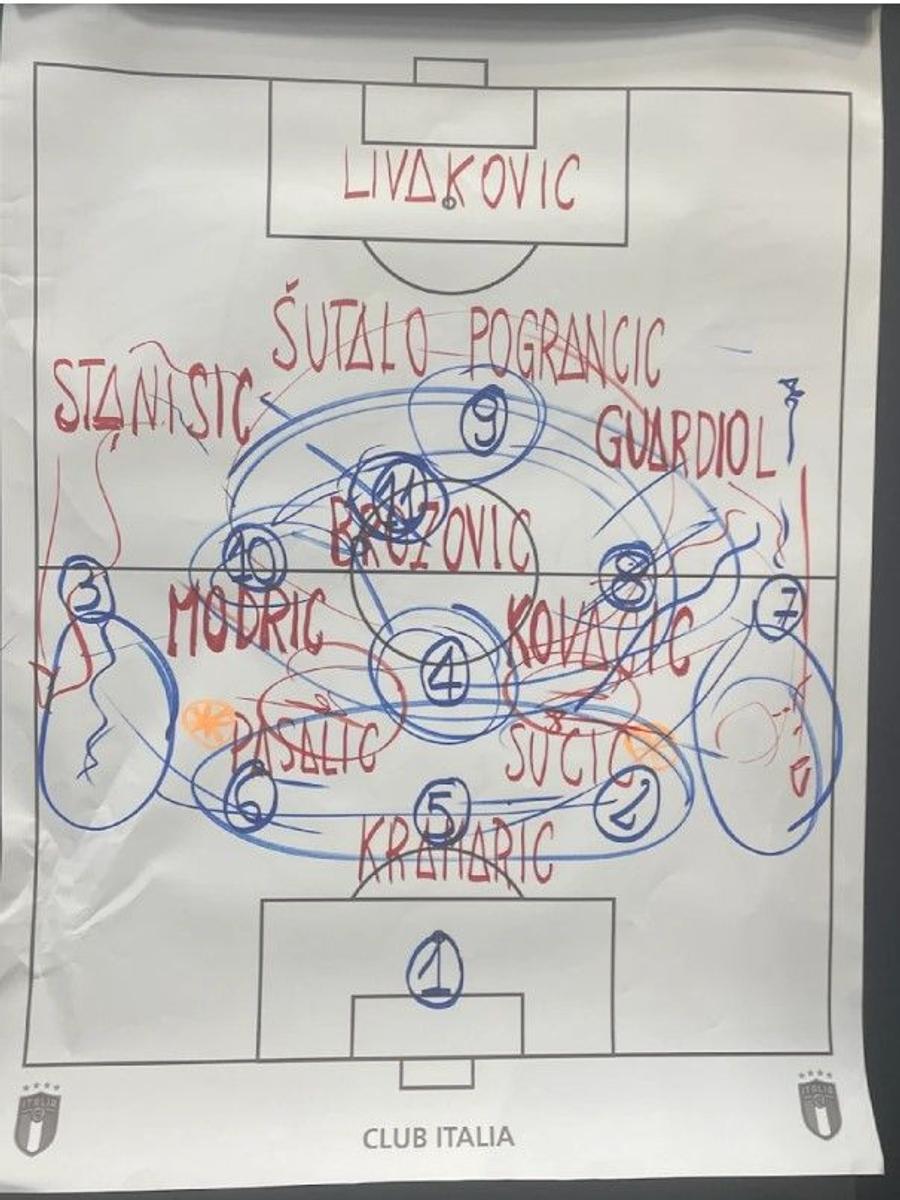 LIVAKOVIC
ŠUTALO POGRANCIC
STANISIC
GUARDIOL
9
11
BROZOVIC
10
8
3
7
MODRIC
KOVACIC
4
PASALIC
SUCIC
6
5
2
KRAMARIC
1
ITALIA
ITALIA
CLUB ITALIA